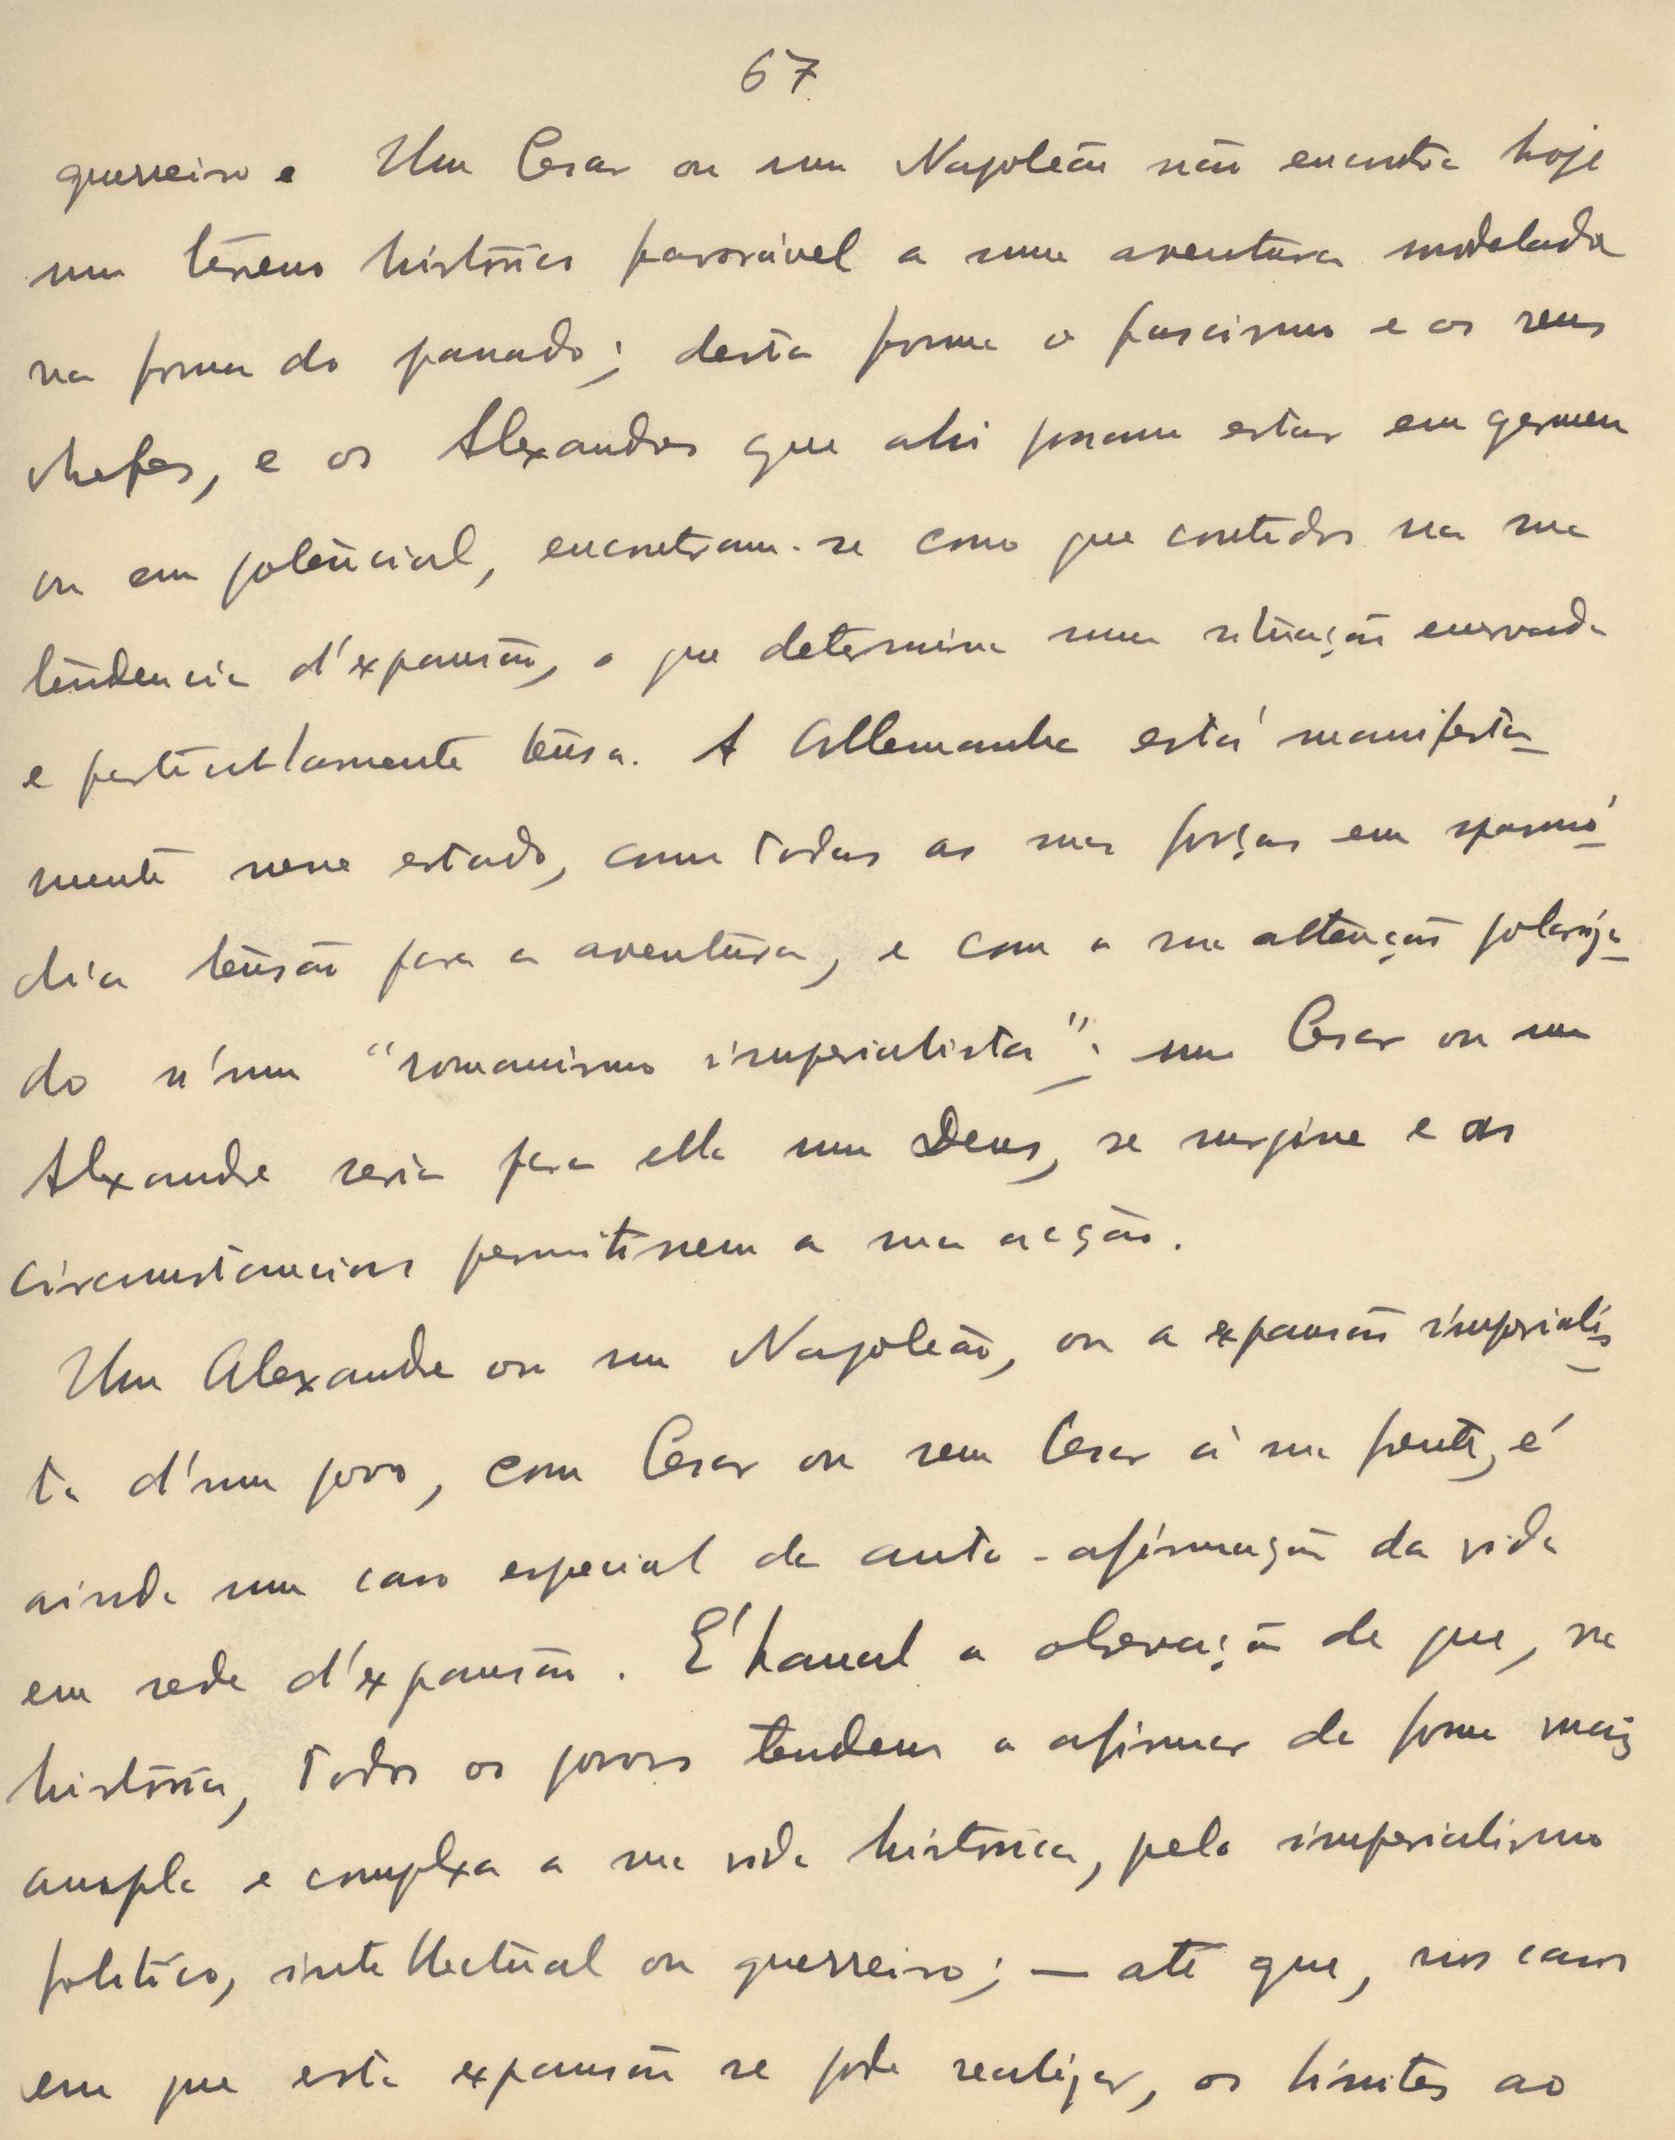 67
guerreiro. Um Cesar ou um Napoleão não encontra hoje
um terreno histórico favorável a uma aventura modelada
na forma do passado; desta forma o fascismo e os seus
chefes, e os Alexandres que ahi possam estar em germen
ou em potencial, encontram-se como que contidos na sua
tendencia d'expansão, o que determina uma situação enervada
e particularmente tensa. A Allemanha está manifesta-
mente nesse estado, com todas as suas forças em spasmó-
dica tensão para a aventura, e com a sua attenção polariza-
do n'um "romanismo imperialista"; um Cesar ou um
Alexandre seria para ella um Deus, se surgisse e as
circumstancias permitissem a sua acção.
Um Alexandre ou um Napoleão, ou a expansão imperialis-
ta d'um povo, com Cesar ou sem Cesar à sua frente, é
ainda um caso especial da auto-afirmação da vida
em sede d'expansão. É banal a observação de que, na
história, todos os povos tendem a afirmar de forma mais
ampla e complexa a sua vida histórica, pelo imperialismo
politico, intellectual ou guerreiro; — até que, nos casos
em que esta expansão se pode realizar, os limites ao